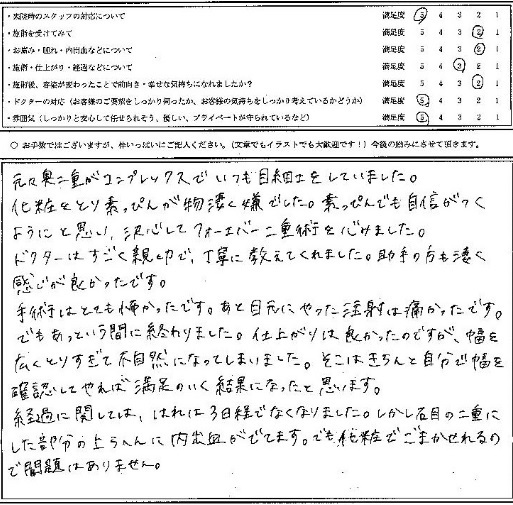 ・来院時のスタッフの対応について 満足度 5 4 3 2 1
・施術を受けてみて 満足度 5 4 3 2 1
・お痛み・腫れ・内出血などについて 満足度 5 4 3 2 1
・施術・仕上がり・経過などについて 満足度 5 4 3 2 1
・施術後、容姿が変わったことで前向き・幸せな気持ちになれましたか？ 満足度 5 4 3 2 1
・ドクターの対応（お客様のご要望をしっかり伺ったか、お客様の気持ちをしっかり考えているかどうか） 満足度 5 4 3 2 1
・雰囲気（しっかりと安心して任せられそう、優しい、プライベートが守られているなど） 満足度 5 4 3 2 1
○ お手数ではございますが、枠いっぱいにご記入ください。（文章でもイラストでも大歓迎です！）今後の励みにさせて頂きます。
元々奥二重がコンプレックスでいつも目細工をしていました。
化粧をとり素っぴんが物凄く嫌でした。素っぴんでも自信がつく
ようにと思い、決心してフォーエバー二重術を心みました。
ドクターはすごく親切で、丁寧に教えてくれました。助手の方も凄く
感じが良かったです。
手術はとても怖かったです。あと目元にやった注射は痛かったです。
でもあっという間に終わりました。仕上がりは良かったのですが、幅を
広くとりすぎて不自然になってしまいました。そこはきちんと自分で幅を
確認してやれば満足のいく結果になったと思います。
経過に関しては、はれは3日程でなくなりました。しかし右目の二重に
した部分の上らへんに内出血がでてます。でも化粧でごまかせれるの
で問題はありません。